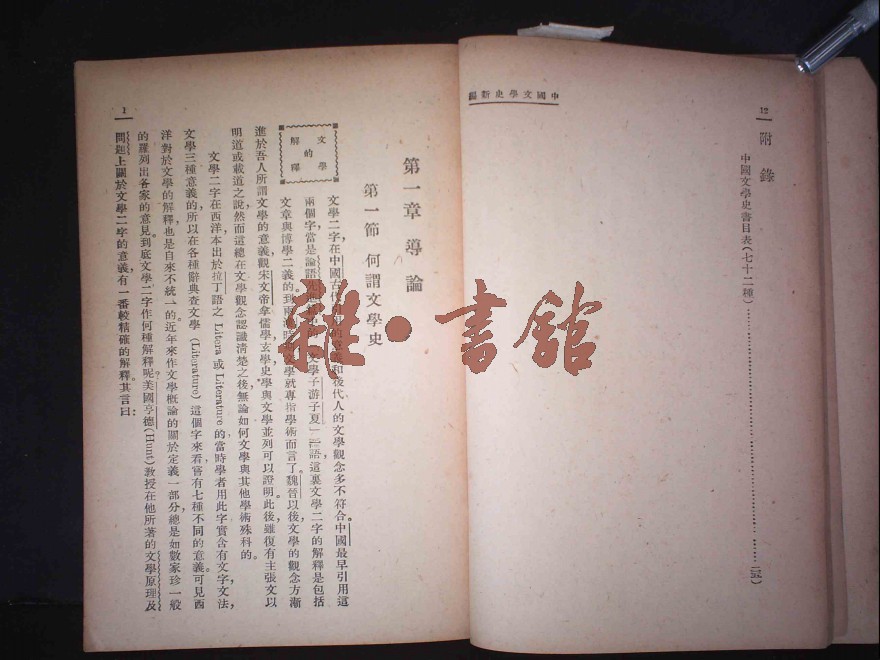 中國文學史新編
12
附錄
中國文學史書目表(七十二種)
第一章 導論
第一節 何謂文學史
文學的解釋
文學二字在中國古代
和後代人的文學觀念多不符合。中國最早引用這
兩個字,當是論語
文學子游子夏」
語,這裏文學二字的解釋是包括
文章與博學二義的。到兩
文學就專指學術而言了。魏晉以後,文學的觀念方漸
進於吾人所謂文學的意義,觀宋文帝拿儒學玄學史學與文學並列可以證明。此後,雖復有主張文以
明道或載道之說,然而這總在文學觀念認識清楚之後,無論如何文學與其他學術殊科的。
文學二字在西洋本出於拉丁語之 Litera 或 Literature 的當時學者用此字實含有文字文法,
文學三種意義的。所以在各種辭典查文學 (Literature) 這個字來看,竟有七種不同的意義。可見西
洋對於文學的解釋,也是自來不統一的。近年來作文學概論的關於定義一部分總是如數家珍一般
的羅列出各家的意見。到底文學二字作何種解釋呢?美國亨德 (Hunt) 教授在他所著的文學原理及
問題上關於文學二字的意義,有一番較精確的解釋。其言曰:
1
雜·書館